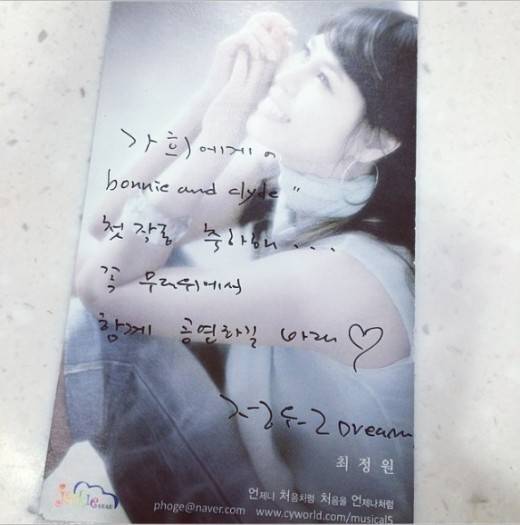 가희에게
"bonnie and clyde"
첫 작품 축하해...
꼭 무대위에서
함께 공연하길 바래♡
Dream
최정원
언제나 처음처럼 처음을 언제나처럼
phoge@naver.com www.cyworld.com/musical5